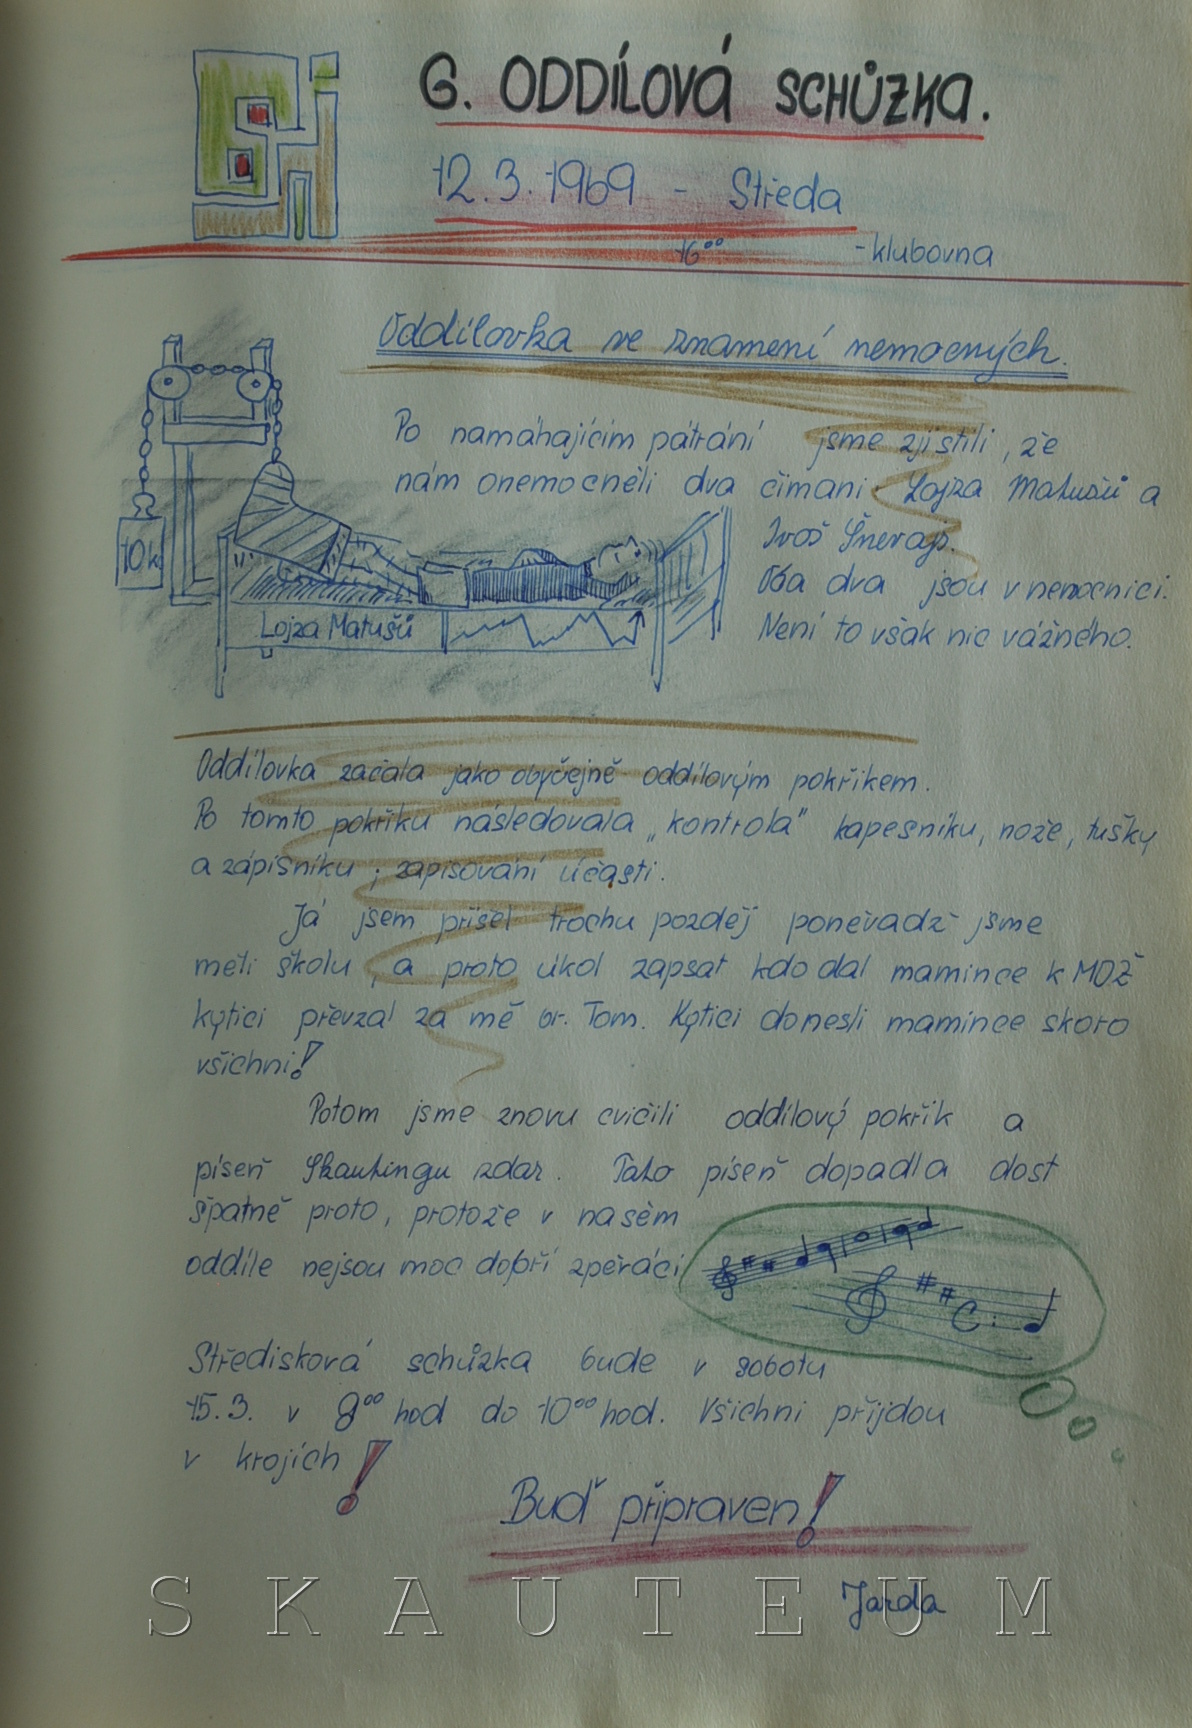 6. ODDÍLOVÁ SCHŮZKA.
12.3.1969 - Středa
16⁰⁰ - klubovna
Oddílovka ve znamení nemocných.
Po namáhajícím pátrání jsme zjistili, že
nám onemocněli dva čimani Lojza Matušů a
Ivoš Šnerajs.
Oba dva jsou v nemocnici.
Není to však nic vážného.
10k
Lojza Matušů
Oddílovka začala jako obyčejně oddílovým pokřikem.
Po tomto pokřiku následovala „kontrola" kapesníku, nože, tušky
a zápisníku; zapisování účasti.
Já jsem přišel trochu pozděj poněvadž jsme
měli školu a proto úkol zapsat kdo dal mamince k MDŽ
kytici převzal za mě br. Tom. Kytici donesli mamince skoro
všichni!
Potom jsme znovu cvičili oddílový pokřik a
píseň Skautingu zdar. Tato píseň dopadla dost
špatně proto, protože v našem
oddíle nejsou moc dobří zpěváci
Středisková schůzka bude v sobotu
15.3. v 8⁰⁰ hod do 10⁰⁰ hod. Všichni příjdou
v krojích!
Buď připraven!
Jarda
SKAUTEUM